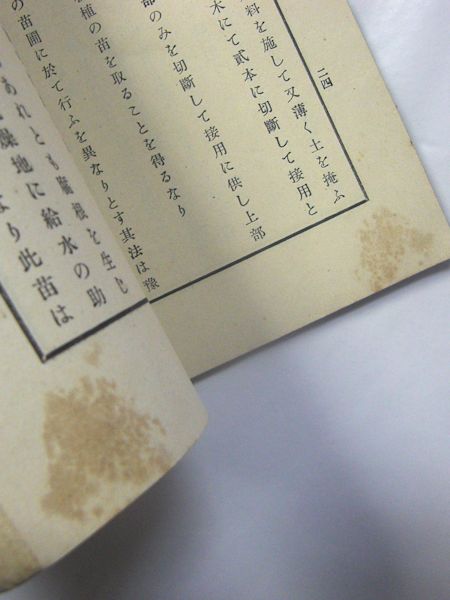 二四
料を施して又薄く土を掩ふ
木にて貳本に切斷して接用と
部のみを切斷して接用に供し上部
植の苗を取ることを得るなり
の苗圃に於て行ふを異なりとす其法は豫
あれとも鬚根を生し
燥地に給水の助
なり此苗は